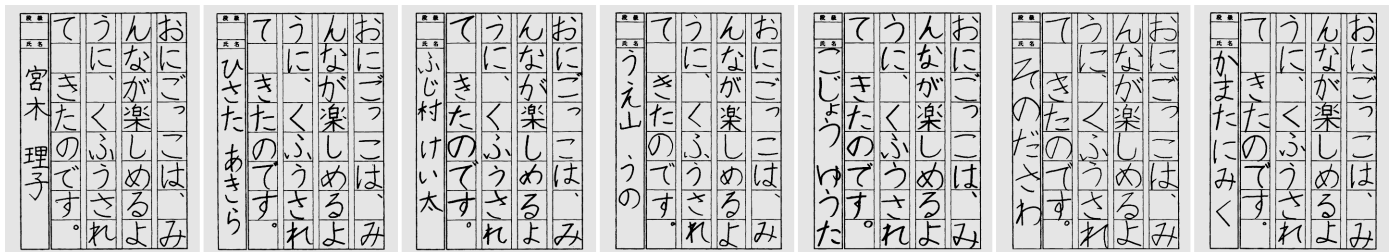 おにごっこは、み
んなが楽しめるよ
うに、くふうされ
て きたのです。
段級
氏名
宮木 理子
おにごっこは、み
んなが楽しめるよ
うに、くふうされ
て きたのです。
段級
氏名
ひさた あきら
おにごっこは、み
んなが楽しめるよ
うに、くふうされ
て きたのです。
段級
氏名
ふじ村 けい太
おにごっこは、み
んなが楽しめるよ
うに、くふうされ
て きたのです。
段級
氏名
うえ山 うの
おにごっこは、み
んなが楽しめるよ
うに、くふうされ
て きたのです。
段級
氏名
ごじょう ゆうた
おにごっこは、み
んなが楽しめるよ
うに、くふうされ
て きたのです。
段級
氏名
そのださわ
おにごっこは、み
んなが楽しめるよ
うに、くふうされ
て きたのです。
段級
氏名
かまたにみく